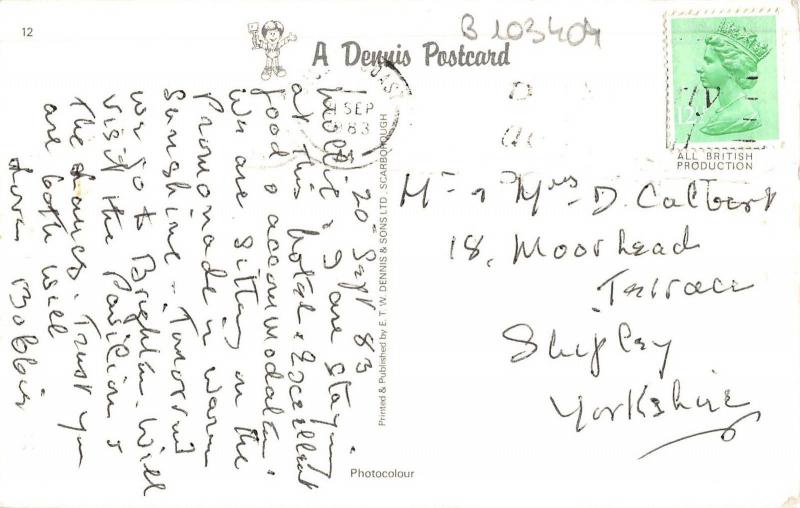 12
B 103404
A Dennis Postcard
SEP
83
12½
ALL BRITISH
PRODUCTION
20 Sept 83
Mollie & I are staying
at this hotel. Excellent
food & accommodation
We are sitting on the
Promonade in warm
sunshine. Tomorrow
we go to Brighton. Will
visit the Pavilion &
the Lanes. Trust you
are both well
Love Bobbie
Printed & Published by E. T. W. DENNIS & SONS LTD., SCARBOROUGH
Mr & Mrs D. Calbert
18, Moorhead
Terrace
Shipley
Yorkshire
Photocolour